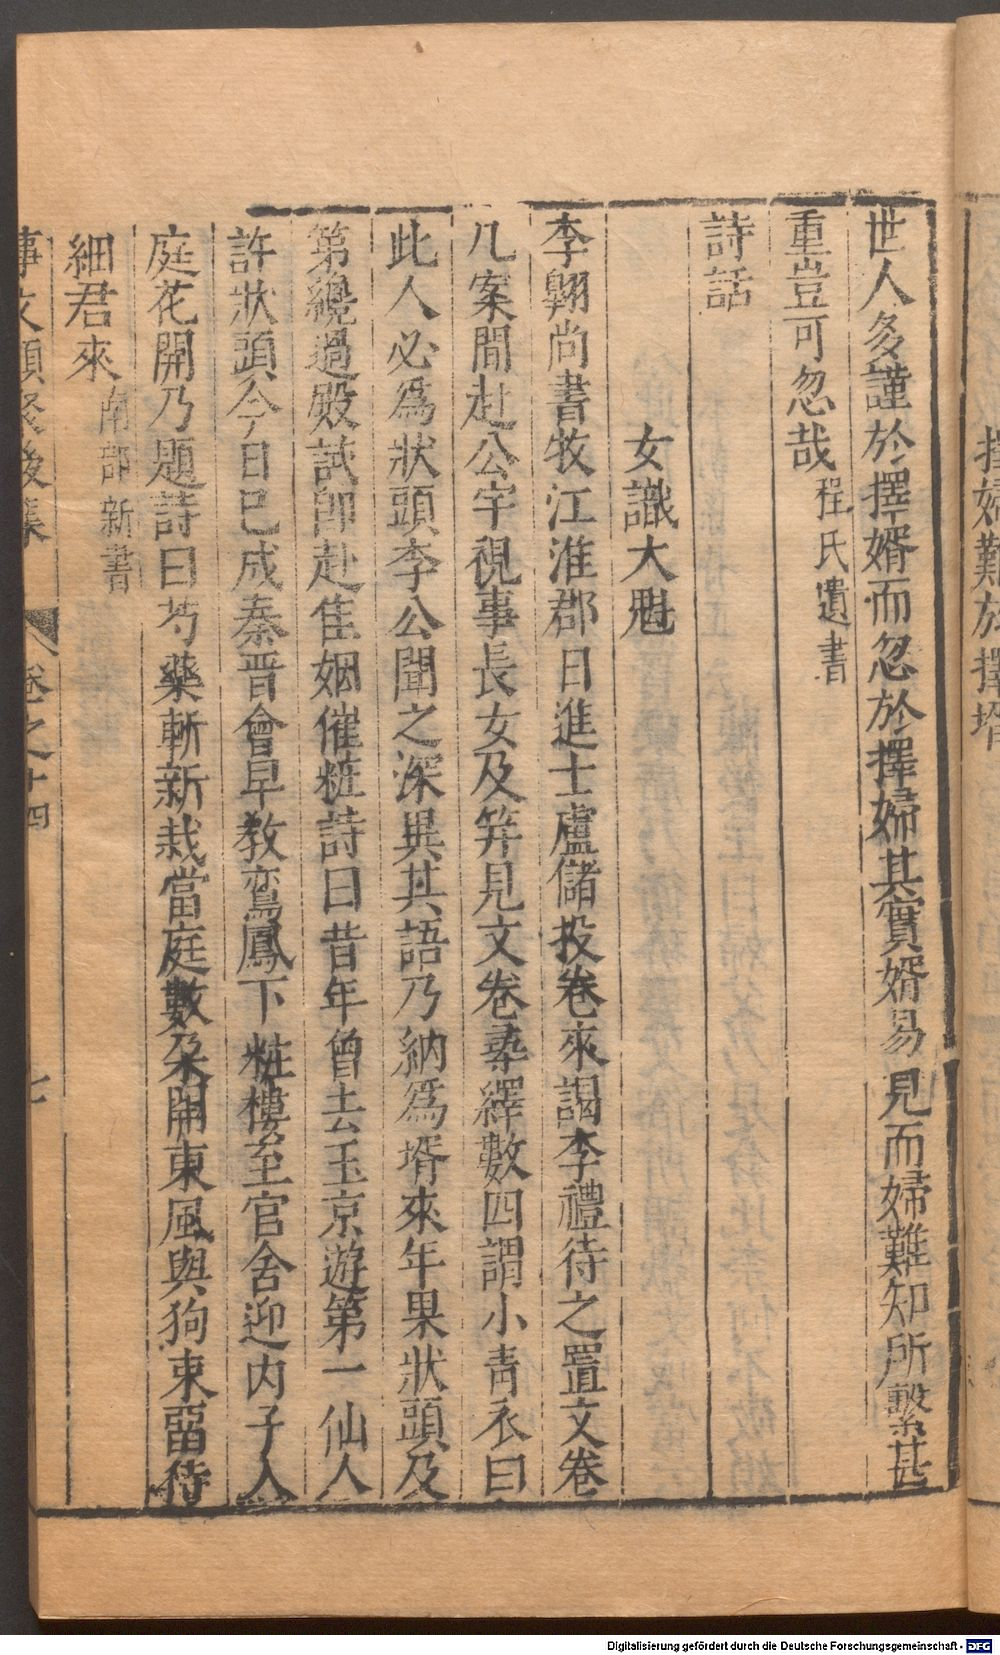 擇婦難於擇壻
世人多謹於擇婿而忽於擇婦其實婿易見而婦難知所繫甚
重豈可忽哉程氏遺書
詩話
女識大魁
李翺尚書牧江淮郡日進士盧儲投卷來謁李禮待之置文卷
几案間赴公宇視事長女及笄見文卷尋繹數四謂小青衣曰
此人必爲狀頭李公聞之深異其語乃納爲壻來年果狀頭及
第纔過殿試卽赴佳姻催粧詩曰昔年曾去玉京遊第一仙人
許狀頭今日已成秦晉會早教鸞鳳下粧樓至官舍迎内子入
庭花開乃題詩曰芍藥斬新栽當庭數朶開東風與狗束留待
細君來南部新書
事文類聚後集 卷之十四 七
Digitalisierung gefördert durch die Deutsche Forschungsgemeinschaft - DFG